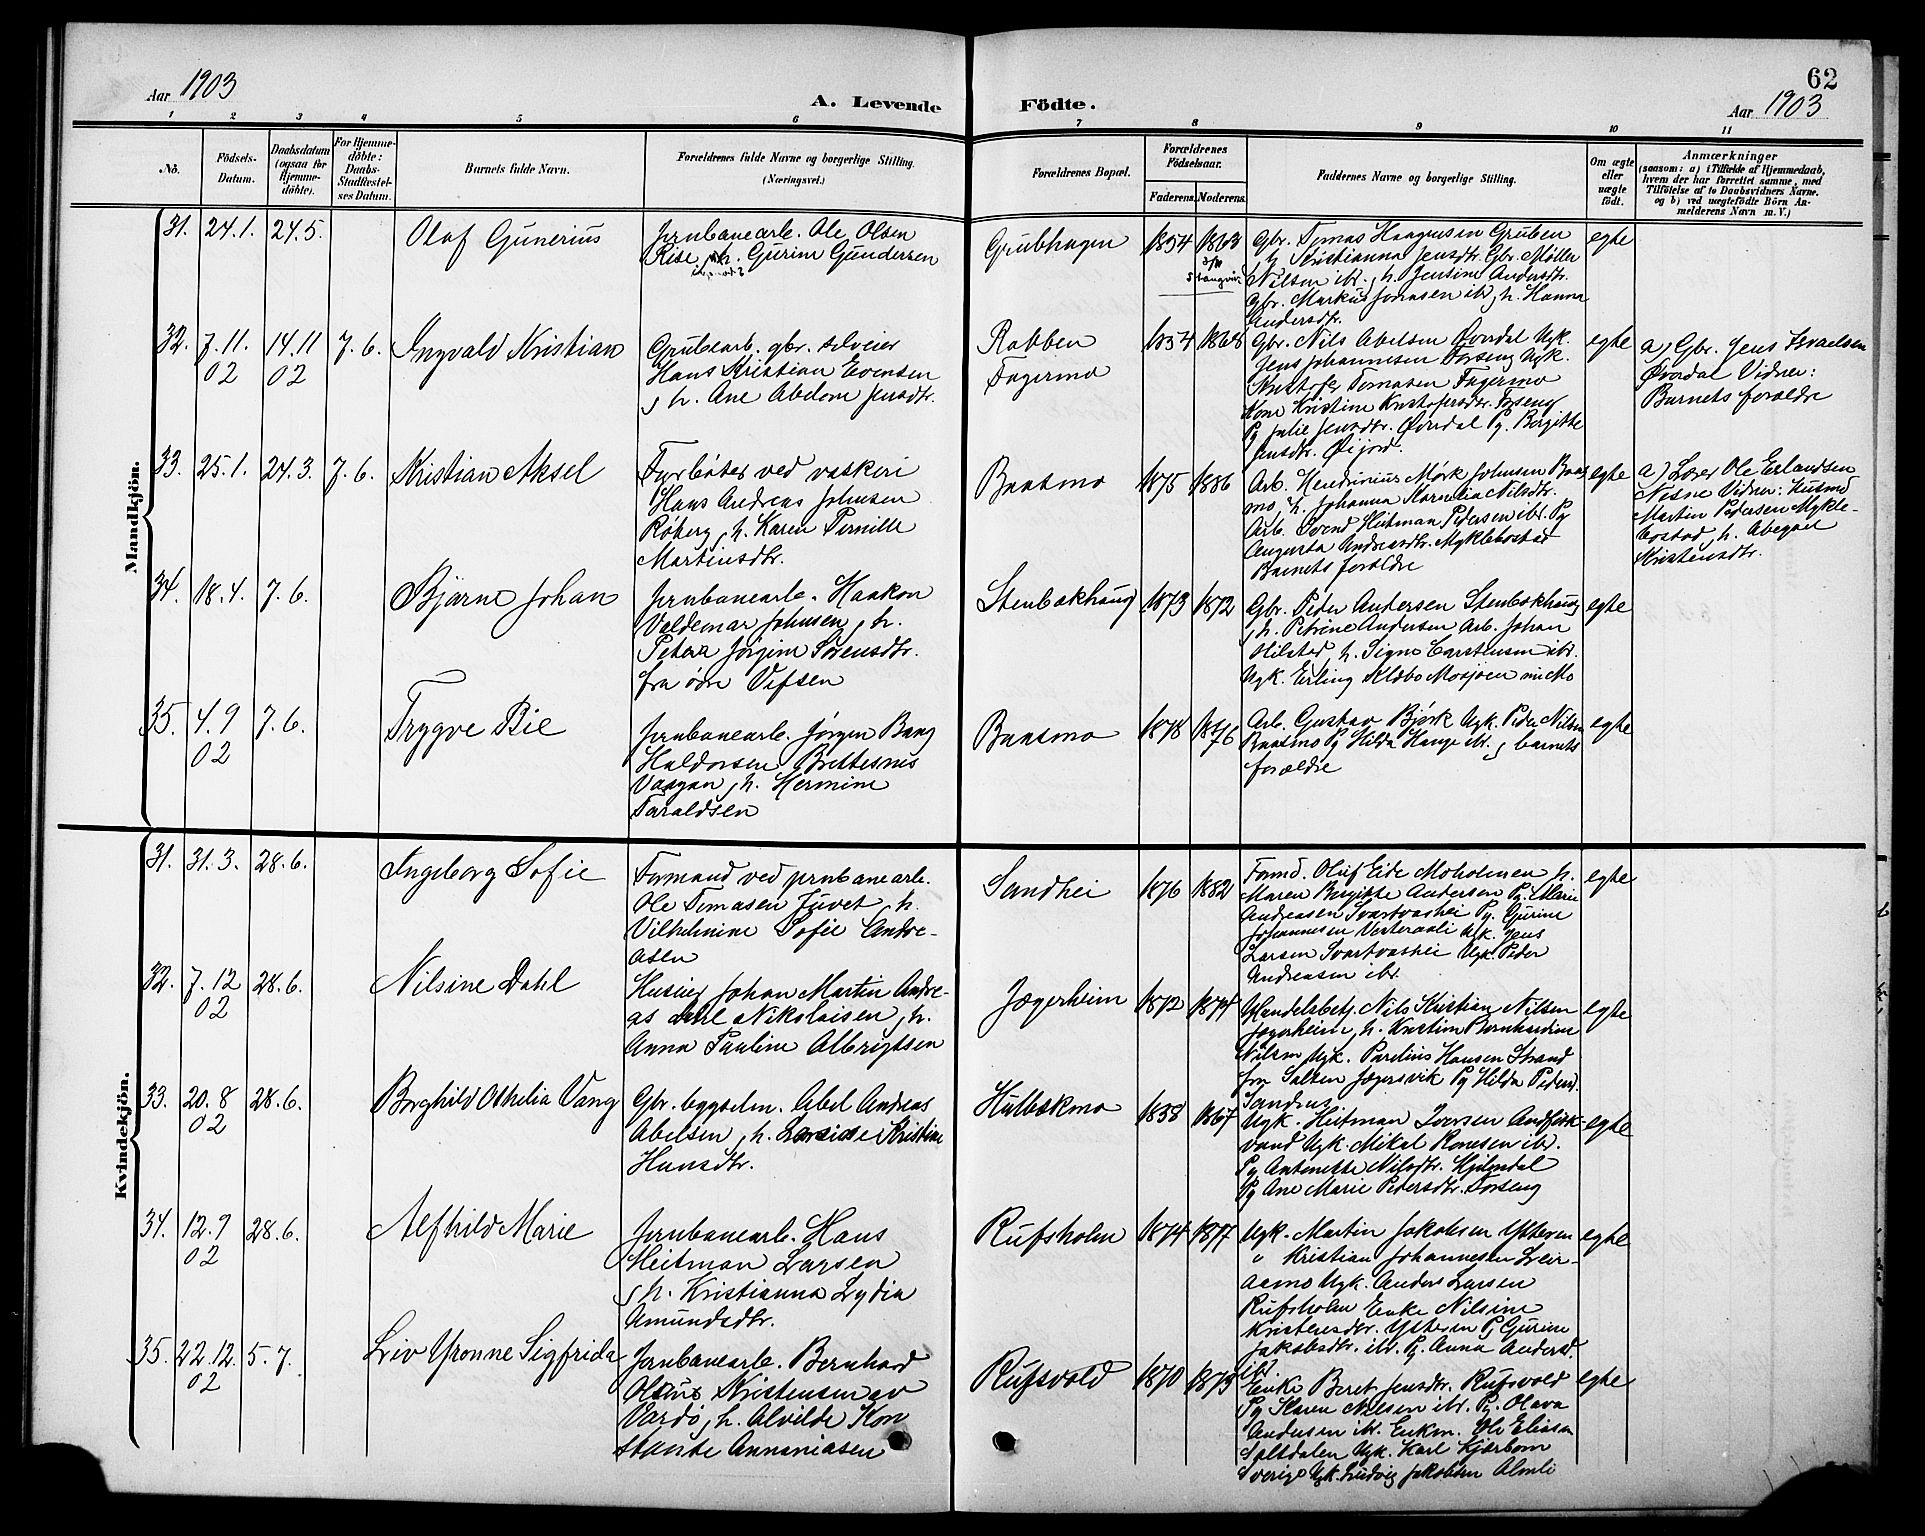 Aar 1903
A. Levende
Födte.
62
Aar 1903
1 2 3 4 5 6 7 8 9 10 11
No.
Födsels-
Datum.
Daabsdatum
(ogsaa for
Hjemme-
döbte).
For Hjemme-
döbte:
Daabs-
Stadfæstel-
ses Datum.
Barnets fulde Navn.
Forældrenes fulde Navne og borgerlige Stilling.
(Næringsvei.)
Forældrenes Bopæl.
Forældrenes
Födselsaar.
Faderens. Moderens.
Faddernes Navne og borgerlige Stilling.
Om ægte
eller
uægte
födt.
Anmærkninger
(saasom: a) i Tilfælde af Hjemmedaab,
hvem der har forrettet samme, med
Tilföielse af to Daabsvidners Navne.
og b) ved uægtefödte Börn An-
melderens Navn m. V.)
Mandkjön.
31. 24.1. 24.5.
Olaf Gunerius
Jernbanearb. Ole Olsen
Rise, h. Gurine Gundersen
Grubhagen
1854 1863
Gbr. Tomas Haagensen Gruben
h. Kristianna Jensdtr. Gbr. Møller
Nilsen ibr., h. Jensine Andersdtr.
Gbr. Markus Jonasen ibr, h. Hanna
Andersdtr.
egte
32. 7.11. 14.11 7.6.
02 02
Ingvald Kristian
Grubearb. gbr. selveier
Hans Kristian Evensen
, h. Ane Abelone Jensdtr.
Rabben
Fagermo
1854 1868
Gbr. Nils Abelsen Øverdal Ugk.
Jens Johannesen Forseng Ugk.
Kristofer Tomasen Fagermo
Kone Kristine Kristofersdtr. Forseng
Pg Julie Jensdtr. Øverdal Pg. Bergitte
Jensdtr. Øijord.
egte
a) Gbr. Jens Israelsen
Øverdal Vidner:
Barnets forældre
33. 25.1. 24.3. 7.6.
Kristian Aksel
Fyrbøter ved vaskeri
Hans Andreas Johnsen
Røberg, h. Karen Pernille
Martinsdtr.
Baasmo
1875 1886
Arb. Hendrinius Mørk Johnsen Baas
mo, h. Johanna Kornelia Nilsdtr.
Arb. Svend Heitman Pedersen ibr. Pg
Augusta Andreasdtr. Myklebostad
Barnets forældre
egte
a) Lærer Ole Erlandsen
Nesne Vidner: Husmd
Martin Pedersen Mykle-
bostad, h. Abegael
Kristensdtr.
34. 18.4. 7.6.
Bjarne Johan
Jernbanearb. Haakon
Valdemar Johnsen, h.
Petera Jørgine Sørensdtr.
fra øvre Vefsen
Stenbakhaug
1873 1872
Gbr. Peder Andersen Stenbakhaug
, h. Petrine Andersen Arb. Johan
Olilstad h. Signe Carstensen ibr.
Ugk. Erling Klæbo Mosjøen in Mo
egte
35. 4.9 7.6.
02
Trygve Bie
Jernbanearb. Jørgen Bang
Haldorsen Brettesnes
Vaagan, h. Hermine
Taraldsen
Baasmo
1878 1876
Arb. Gustav Bjørk Ugk. Peder Nilsen
Baasmo Pg Hilda Hauge ibr. , barnets
forældre
egte
Kvindekjön.
31. 31.3. 28.6.
Ingeborg Sofie
Formand ved jernbanearb.
Ole Tomasen Juvet, h.
Vilhelmine Sofie Andre-
asen
Sandhei
1876 1882
Formd. Oluf Eide Moholmen h.
Maren Bergitte Andersen Pg. Marie
Andreasen Svartvashei Pg. Gurine
Johannesen Vesteraali Ugk. Jens
Larsen Svartvashei Ugk. Peder
Andreasen ibr.
egte
32. 7.12 28.6.
02
Nilsine Dahl
Huseier Johan Martin Andre-
as Nikolaisen, h.
Anna Pauline Albrigtsen
Jægerheim
1872 1874
Handelsbetj. Nils Kristian Nilsen
Jægerheim, h. Kristine Bernhardine
Nilsen Ugk. Parelius Hansen Strand
fra Salten Jægersvik Pg Hilda Pedersd.
Sandnes
egte
33. 20.8 28.6.
02
Borghild Othelia Vang
Gbr. bygselm. Abel Andreas
Abelsen, h. Kristine
Hansdtr.
Hulbekmo
1858 1867
Ugk. Heitman Iversen Andfisk-
vand Ugk. Mikal Konesen ibr.
Pg Antonette Nilsdtr. Hjelmdal
Pg Ane Marie Pedersdtr. Forseng
egte
34. 12.9 28.6.
02
Alfhild Marie
Jernbanearb. Hans
Heitman Larsen
, h. Kristianna Lydia
Amundsdtr.
Rufsholm
1874 1877
Ugk. Martin Jakobsen Ytteren
" Kristian Johannesen Leir-
aamo Ugk. Anders Larsen
Rufsholm Enke Nilsine
Kristensdtr. Ytteren Pg Gurine
Jakobsdtr. ibr. Pg. Anna Andersd.
ibr
egte
35. 22.12. 5.7.
02
Liv Yvonne Sigfrida
Jernbanearb. Bernhard
Olaus Kristensen av
Vardø, h. Alvilde Kon
stanse Annaniasen
Rufsvold
1870 1875
Enke Beret Jensdtr. Rufsvold
Pg Karen Nilsen ibr. Pg. Olava
Andersen ibr. Enkm. Ole Eliasen
Saltdalen Ugk. Karl Kjerbom
Sverige Ugk. Ludvig Jakobsen Almli
egte